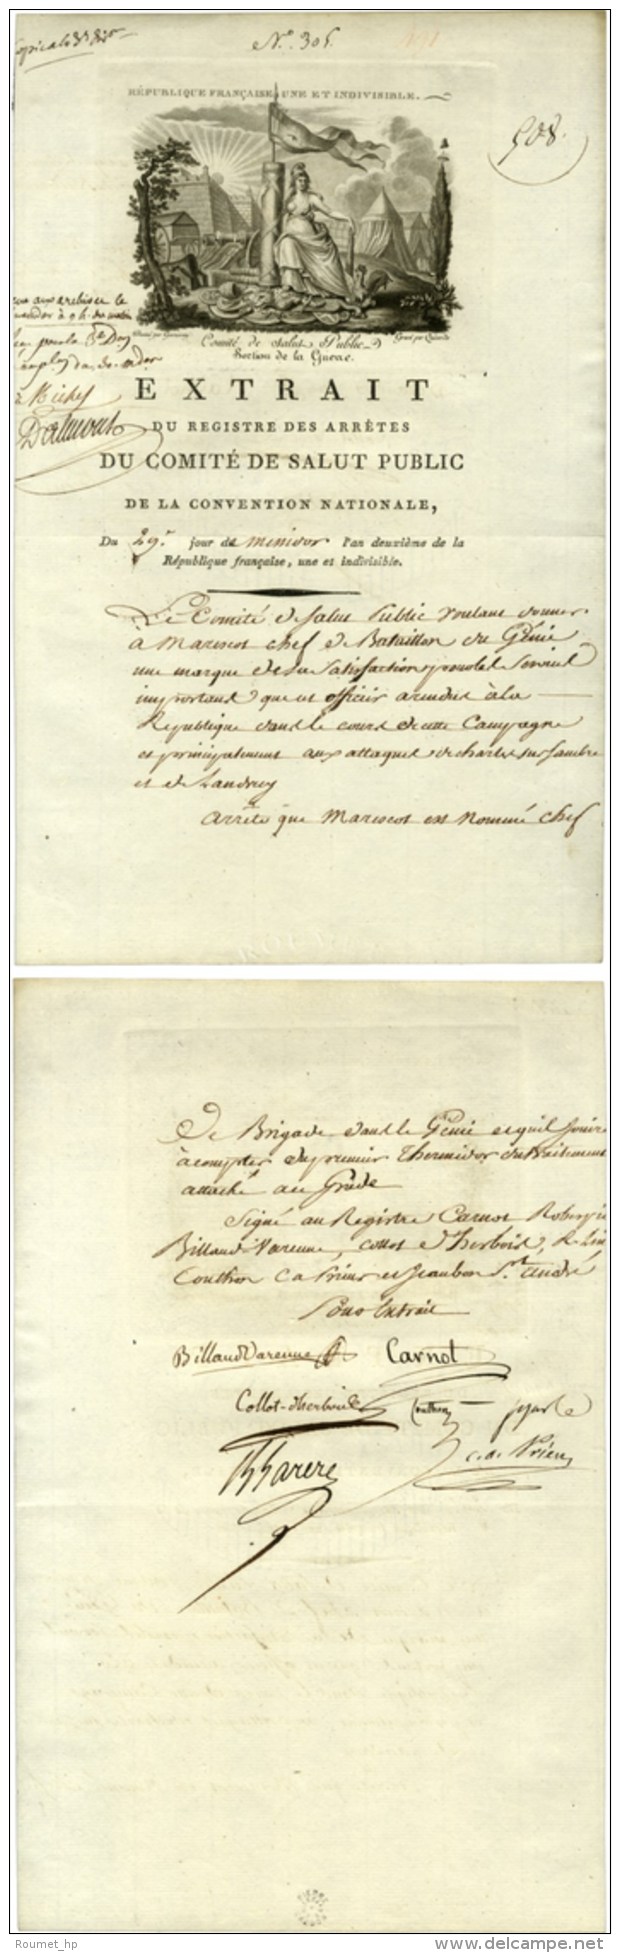 N.º 305.
RÉPUBLIQUE FRANÇAISE, UNE ET INDIVISIBLE.
508.
Comité de Salut Public
Section de la Guerre.
EXTRAIT
DU REGISTRE DES ARRÊTÉS
DU COMITÉ DE SALUT PUBLIC
DE LA CONVENTION NATIONALE,
Du 29.e jour de Messidor l'an deuxième de la
République française, une et indivisible.
Le Comité de Salut Public voulant donner
à Marescot chef de Bataillon du Génie
une marque de sa satisfaction pour les services
importans que cet officier a rendus à la
République dans le cours de cette Campagne
et principalement aux attaques de Charles sur Sambre
et de Landrecy
arrête que Marescot est nommé chef
de Brigade dans le Génie et qu'il jouira
à compter du premier Thermidor du traitement
attaché au Grade
Signé au Registre Carnot Robespie
Billaud Varenne, Collot d'herbois, R. Lin
Couthon C a Prieur et Jeanbon St. André
Pour Extrait
Billaud Varenne Carnot
Collot-d'herbois Couthon
BBarere C. a. Prieur
Roumet_hp
www.delcampe.net